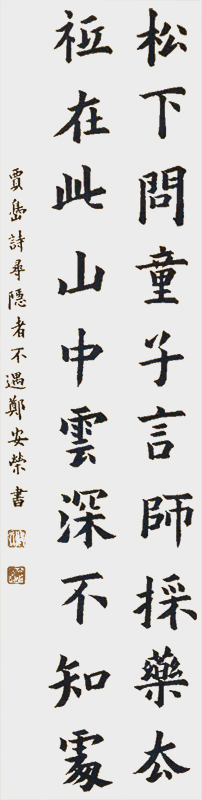 松下問童子言師採藥去
祇在此山中雲深不知處
賈島詩尋隱者不遇鄭安榮書